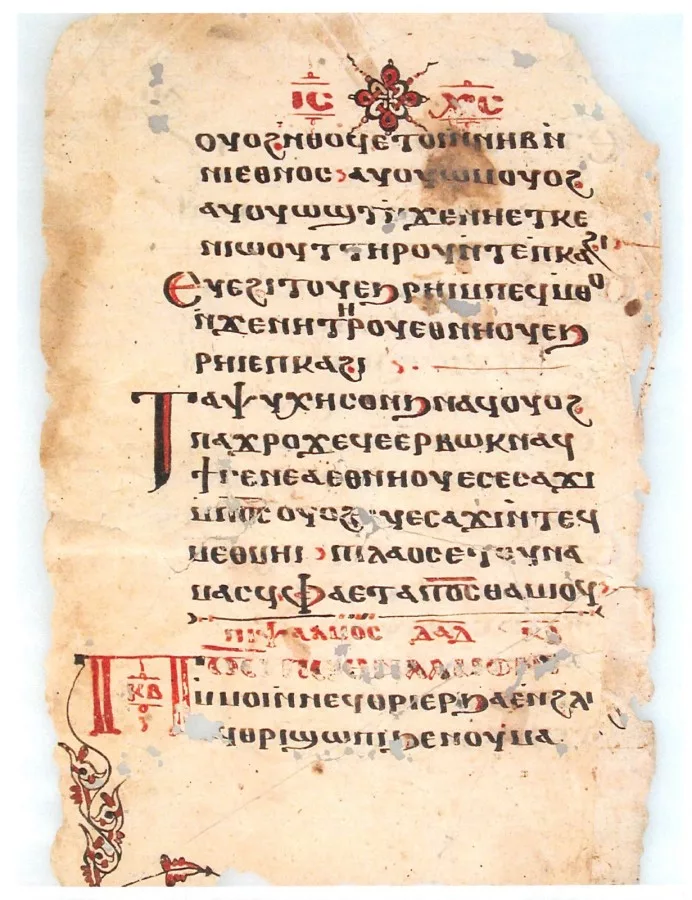 ⲓ̅ⲥ̅ ⲭ̅ⲥ̅
ⲟⲩⲟϩⲛⲑⲟϥⲉⲧⲟⲓⲛⲛⲏⲃⲛ
ⲛⲓⲉⲑⲛⲟⲥ ⲁⲩⲟⲩⲱⲙⲟⲩⲟϩ
ⲁⲩⲟⲩⲱϣⲧⲛϫⲉⲛⲏⲉⲧⲕⲉ
ⲛⲓⲱⲟⲩⲧⲧⲏⲣⲟⲩⲛⲧⲉⲡⲕⲁϩⲓ
ⲉⲩⲉϩⲓⲧⲟⲩⲉϧⲣⲏⲓⲙⲡⲉϥⲙⲑⲟ
ⲛϫⲉⲛⲏⲧⲏⲣⲟⲩⲉⲑⲛⲏⲟⲩⲉϧ
ⲣⲏⲓⲉⲡⲕⲁϩⲓ
ⲧⲁⲯⲩⲭⲏⲥⲟⲛϧⲛⲁϥⲟⲩⲟϩ
ⲡⲁϫⲣⲟϫⲉϥⲉⲉⲣⲃⲱⲕⲛⲁϥ
ϯⲅⲉⲛⲉⲁⲉⲑⲛⲏⲟⲩⲉⲥⲉⲥⲁϫⲓ
ⲙⲡⲟ̅ⲥ̅ⲟⲩⲟϩⲉⲩⲉⲥⲁϫⲓⲛⲧⲉϥ
ⲙⲉⲑⲙⲏⲓ ⲡⲓⲗⲁⲟⲥⲉⲧⲟⲩⲛⲁ
ⲙⲁⲥϥⲫⲁⲉⲧⲁⲡⲟ̅ⲥ̅ⲑⲁⲙⲓⲟϥ
ⲡⲓⲯⲁⲗⲙⲟⲥ ⲇⲁⲇ
ⲕⲃ
ⲙⲙⲟⲓⲛⲛⲉϥⲑⲣⲓⲉⲣϧⲁⲉⲛϩⲗⲓ
ⲁϥⲑⲣⲓϣⲱⲡⲓϧⲉⲛⲟⲩⲙⲁ